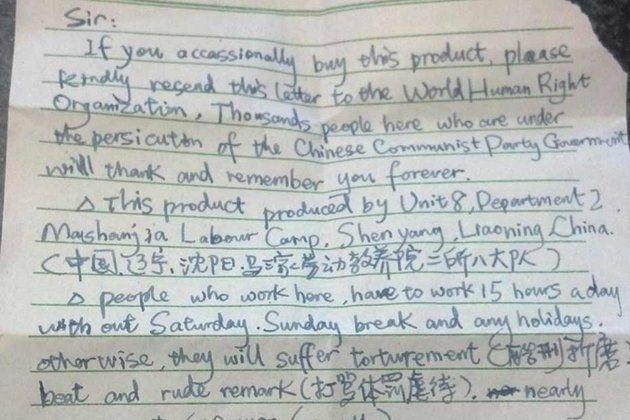 Sir:
If you accassionally buy this product, please
kindly resend this letter to the World Human Right
Organization. Thousands people here who are under
the persicution of the Chinese Communist Party Government
will thank and remember you forever.
△ This product produced by Unit 8, Department 2
Mashanjia Labour Camp, Shenyang, Liaoning, China.
(中国,辽宁,沈阳,马三家劳动教养院二所八大队)
△ people who work here, have to work 15 hours a day
with out Saturday. Sunday break and any holidays.
otherwise, they will suffer torturement
beat and rude remark (打骂体罚虐待). nearly